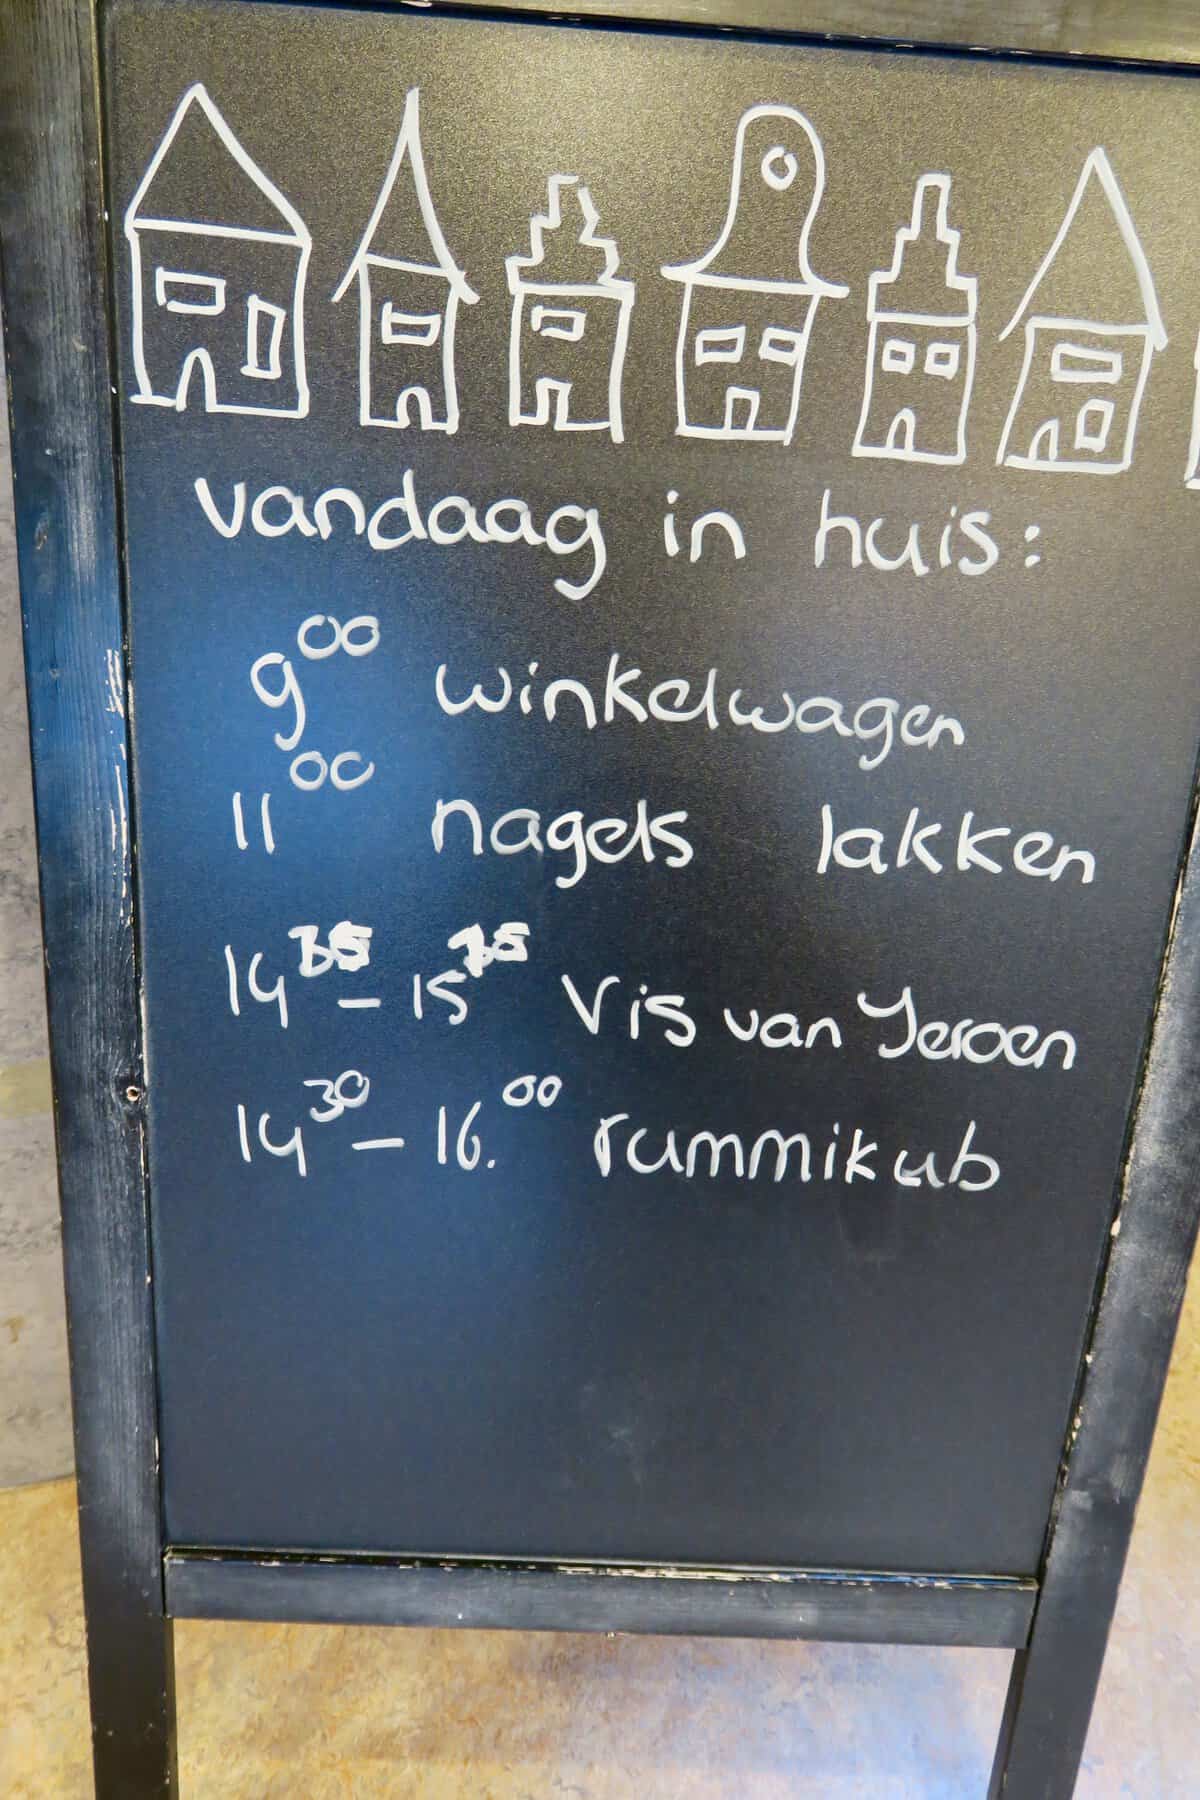 vandaag in huis:
9⁰⁰ winkelwagen
11⁰⁰ nagels lakken
14 – 15 Vis van Jeroen
14³⁰ – 16.⁰⁰ rummikub